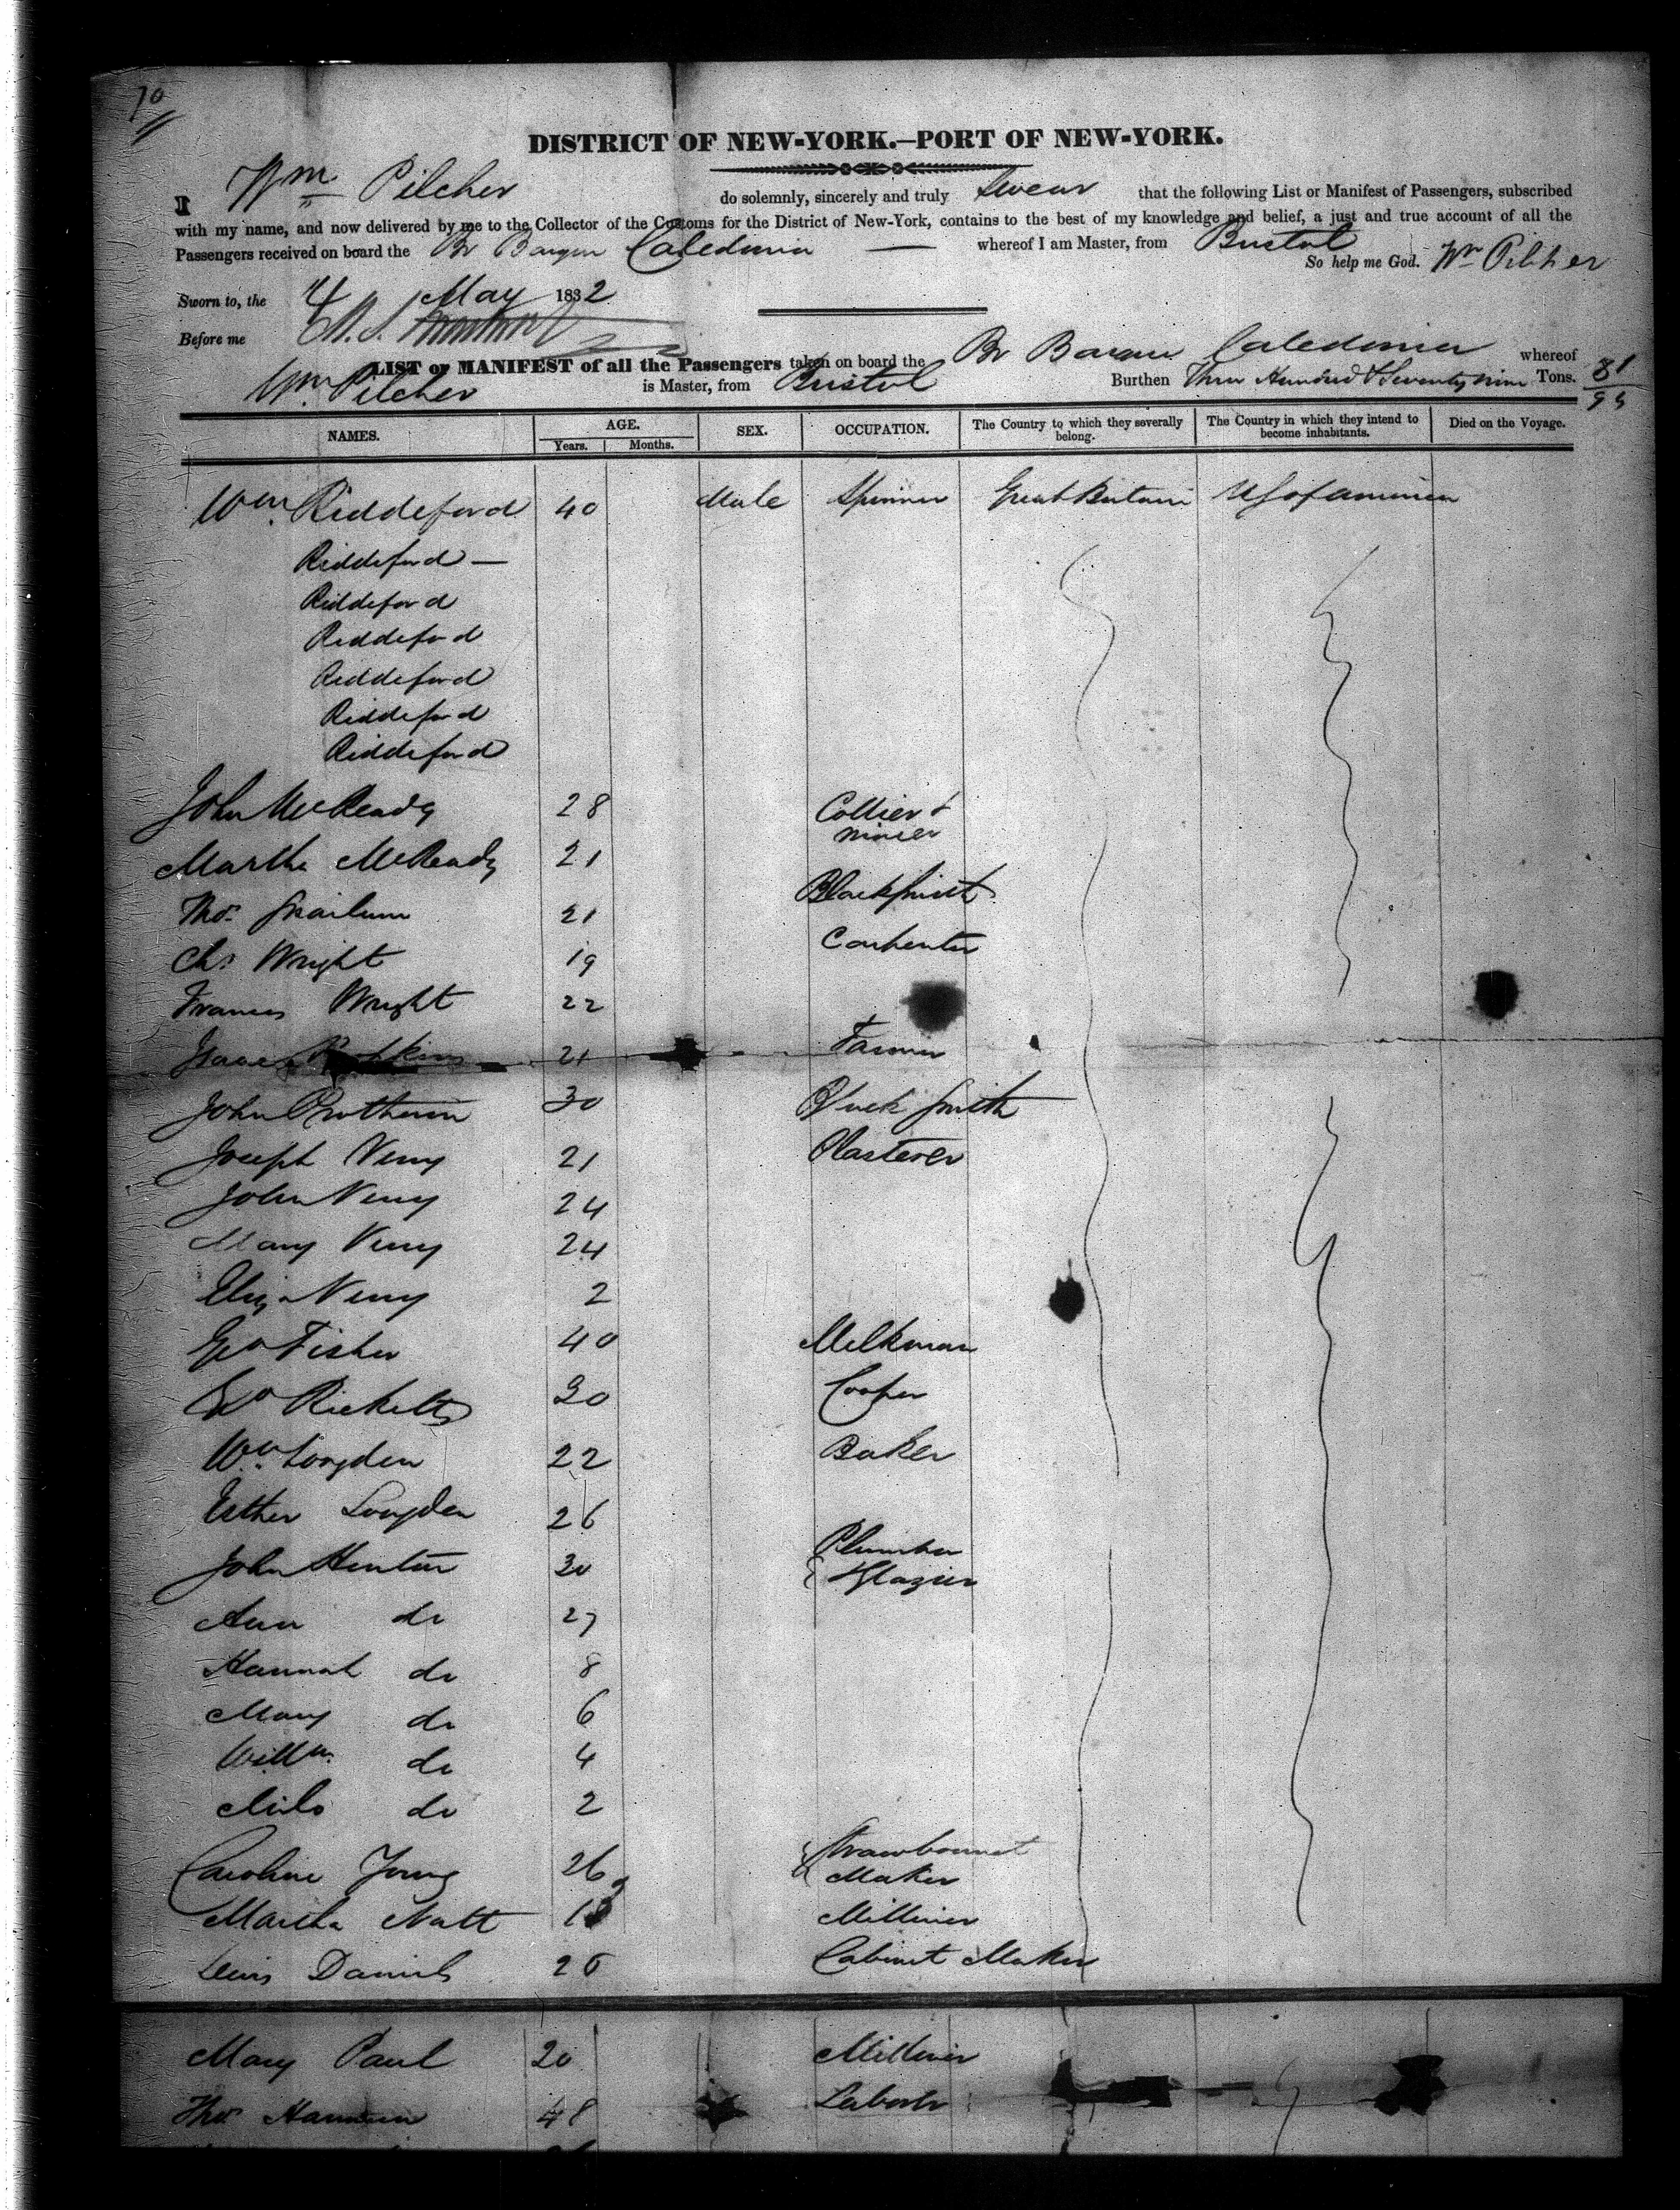 70
DISTRICT OF NEW-YORK.—PORT OF NEW-YORK.
I Wm Pilcher do solemnly, sincerely and truly Swear that the following List or Manifest of Passengers, subscribed
with my name, and now delivered by me to the Collector of the Customs for the District of New-York, contains to the best of my knowledge and belief, a just and true account of all the
Passengers received on board the Br Barque Caledonia — whereof I am Master, from Bristol
So help me God. Wm Pilcher
Sworn to, the 4 May 1832
Before me
LIST or MANIFEST of all the Passengers taken on board the Br Barque Caledonia whereof
Wm Pilcher is Master, from Bristol Burthen Three Hundred & Seventy nine Tons. 81/95
NAMES. AGE. SEX. OCCUPATION. The Country to which they severally belong. The Country in which they intend to become inhabitants. Died on the Voyage.
Years. Months.
Wm. Riddeford 40 Male Spinner Great Britain US of America
Riddeford —
Riddeford
Riddeford
Riddeford
Riddeford
Riddeford
John McReady 28 Collier &
Miner
Martha McReady 21
Thos. 21 Blacksmith
Chs Wright 19 Carpenter
Frances Wright 22
Isaac 21 Farmer
John 30 Black Smith
Joseph Veny 21 Plasterer
John Veny 24
Mary Veny 24
Eliza Veny 2
Geo Fisher 40 Milkman
Ricketts 30 Cooper
Wm. Longden 22 Baker
Esther Longden 26
John Henton 30 Plumber
& Glazier
Ann do 27
Hannah do 8
Mary do 6
Willm. do 4
do 2
Caroline Young 26 Strawbonnet
Maker
Martha Natt 18 Milliner
Lewis Daniels 26 Cabinet Maker
Mary Paul 20 Milliner
Thos 48 Labour